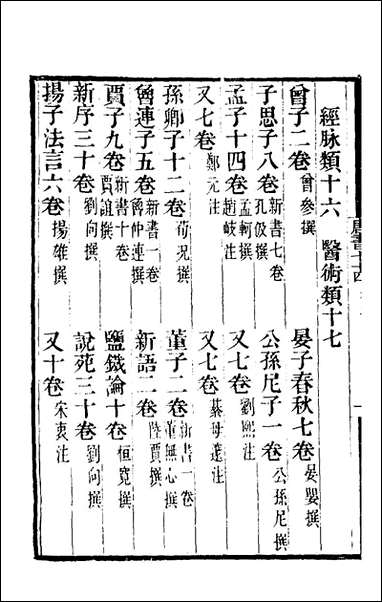 經脉類十六　醫術類十七
曾子二卷 曾參撰　晏子春秋七卷 晏嬰撰
子思子八卷 新書七卷 孔伋撰　公孫尼子一卷 公孫尼撰
孟子十四卷 孟軻撰 趙岐注　又七卷 劉熙注
又七卷 鄭元注　又七卷 綦母邃注
孫卿子十二卷 荀況撰　董子二卷 新書一卷 董無心撰
魯連子五卷 新書一卷 魯仲連撰　新語二卷 陸賈撰
賈子九卷 新書十卷 賈誼撰　鹽鐵論十卷 桓寬撰
新序三十卷 劉向撰　說苑三十卷 劉向撰
揚子法言六卷 揚雄撰　又十卷 宋衷注